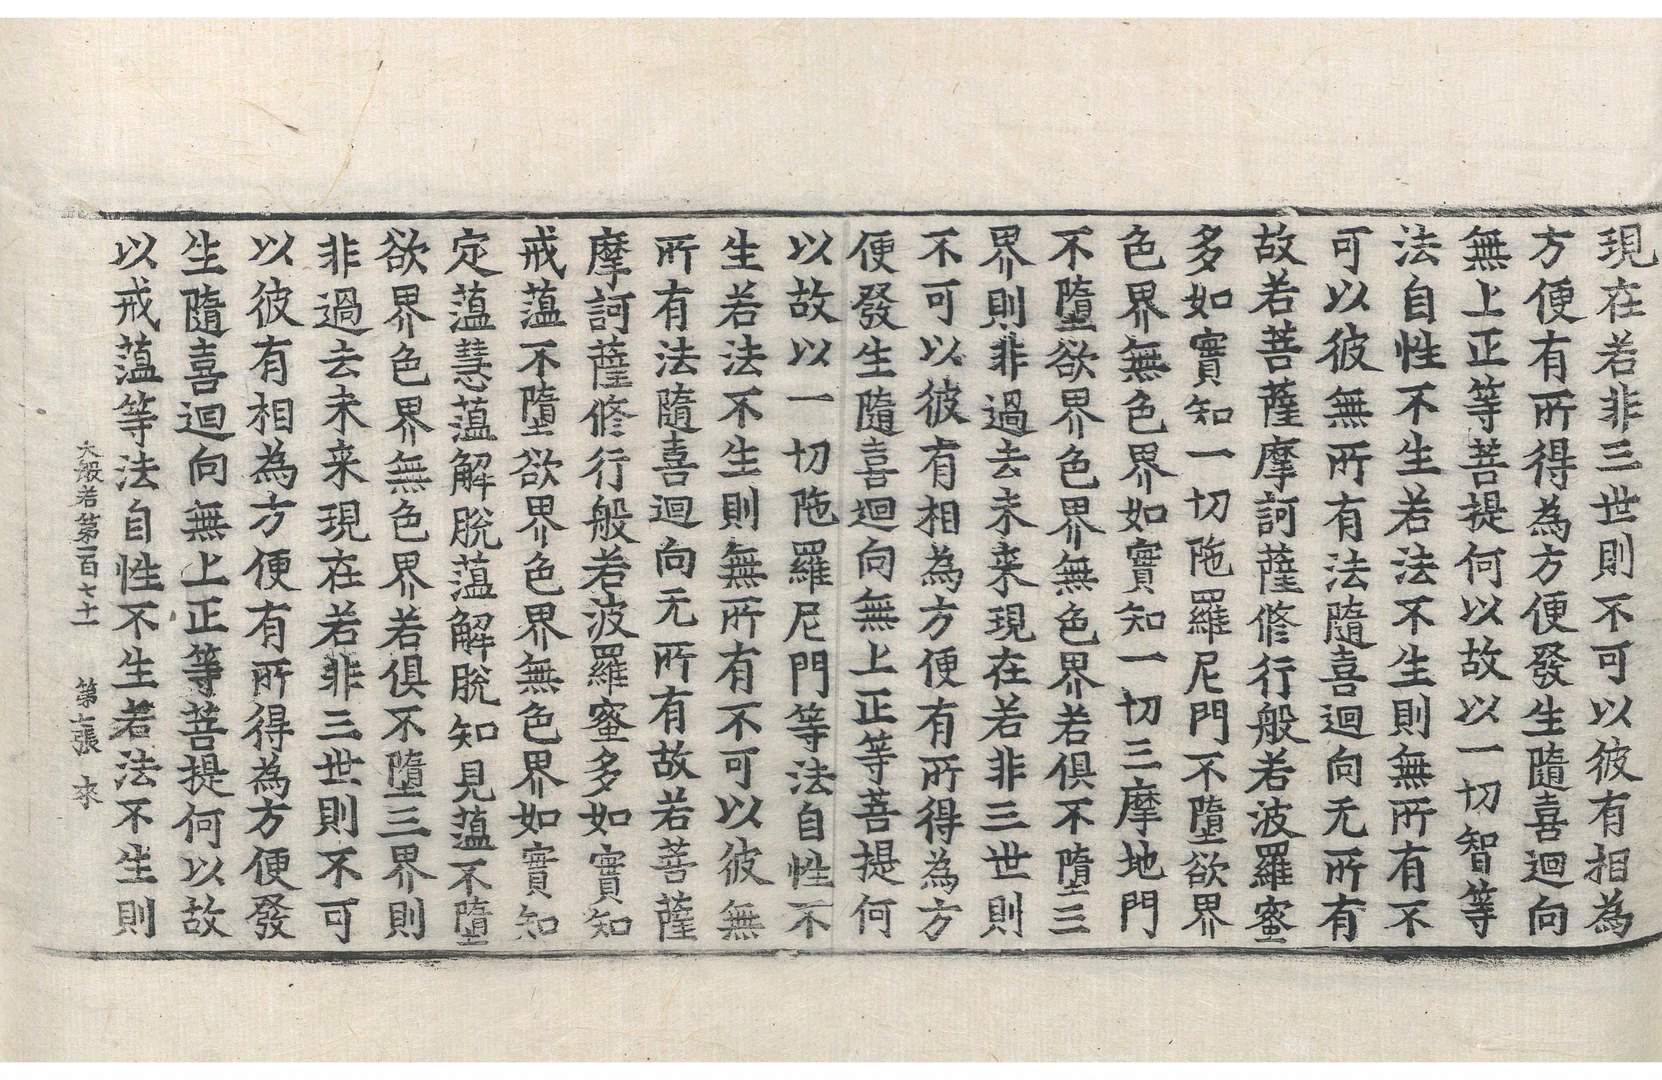 現在若非三世則不可以彼有相為
方便有所得為方便發生隨喜迴向
無上正等菩提何以故以一切智等
法自性不生若法不生則無所有不
可以彼無所有法隨喜迴向无所有
故若菩薩摩訶薩修行般若波羅蜜
多如實知一切陁羅尼門不墮欲界
色界無色界如實知一切三摩地門
不墮欲界色界無色界若俱不墮三
界則非過去未来現在若非三世則
不可以彼有相為方便有所得為方
便發生隨喜迴向無上正等菩提何
以故以一切陁羅尼門等法自性不
生若法不生則無所有不可以彼無
所有法隨喜迴向无所有故若菩薩
摩訶薩修行般若波羅蜜多如實知
戒蕰不墮欲界色界無色界如實知
定蕰慧蕰解脫蕰解脫知見蕰不墮
欲界色界無色界若俱不墮三界則
非過去未来現在若非三世則不可
以彼有相為方便有所得為方便發
生隨喜迴向無上正等菩提何以故
以戒蕰等法自性不生若法不生則
大般若第一百七十一　第七張　來